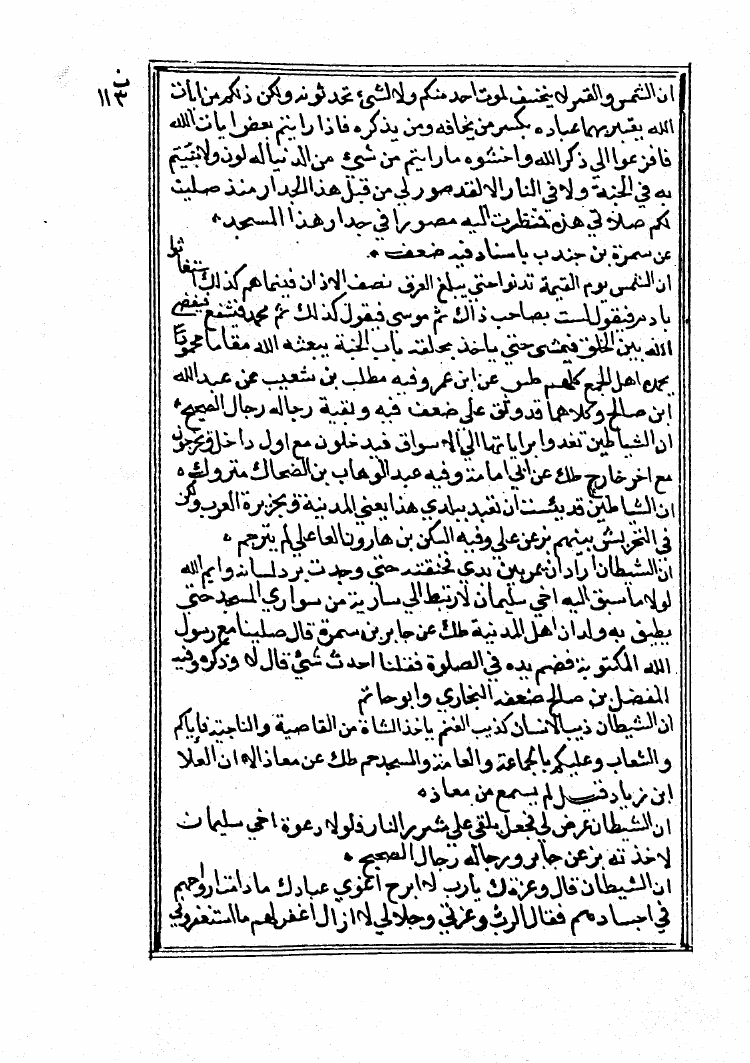 ان الشمس والقمر لا يخسف لموت احد منكم ولا لشئ تحدثونه ولكن ذلكم من ايات
الله يعتبر بهما عباده يكسر من يخافه ومن يذكره فاذا رايتم بعض ايات الله
فافزعوا الي ذكر الله واخشوه ما رايتم من شئ من الدنيا له لون ولا نبئتم
به في الجنة ولا في النار الا لقد صور لي من قبل هذا الجدار منذ صليت
لكم صلاتي هذه فنظرت اليه مصورا في جدار هذا المسجد
عن سمرة بن جندب باسناد فيه ضعف
ان الشمس يوم القيمة تدنوا حتي يبلغ العرق نصف الاذان فبينما هم كذلك استغاثوا
بادم فيقول لست بصاحب ذاك ثم موسي فيقول كذلك ثم محمد فتشفع فيقضي
الله بين الخلق فيمشي حتي ياخذ بحلقة باب الجنة يبعثه الله مقاما محمودا
يحمده اهل الجمع كلهم طس عن ابن عمر وفيه مطلب بن شعيب عن عبد الله
ابن صالح وكلاهما قد وثق علي ضعف فيه وبقية رجاله رجال الصحيح
ان الشياطين تغدوا براياتها الي الاسواق فيدخلون مع اول داخل ويخرجون
مع اخر خارج طك عن ابي امامة وفيه عبد الوهاب بن الضحاك متروك
ان الشياطين قد يئست ان تعبد ببلدي هذا يعني المدينة وبجزيرة العرب ولكن
في التحريش بينهم بز عن علي وفيه السكن بن هارون العاعلي لم يترجم
ان الشيطان اراد ان يمر بين يدي فخنقته حتي وجدت برد لسانه وايم الله
لولا ما سبق اليه اخي سليمان لارتبط الي سارية من سواري المسجد حتي
يطيق به ولدان اهل المدينة طك عن جابر بن سمرة قال صلينا مع رسول
الله المكتوبة فضم يده في الصلوة فقلنا احدث شئ قال لا وذكره وفيه
المفضل بن صالح ضعفه البخاري وابو حاتم
ان الشيطان ذيب الانسان كذيب الغنم ياخذ الشاة من القاصية والناحية فاياكم
والشعاب وعليكم بالجماعة والعامة والمسجد حم طك عن معاذ الا ان العلا
ابن زياد قيل لم يسمع من معاذ
ان الشيطان عرض لي فجعل يلقي علي شرر النار فلولا دعوة اخي سليمان
لاخذته بز عن جابر ورجاله رجال الصحيح
ان الشيطان قال وعزتك يا رب لا ابرح اغوي عبادك ما دامت ارواحهم
في اجسادهم فقال الرب وعزتي وجلالي لا ازال اغفر لهم ما استغفروني
١١٣